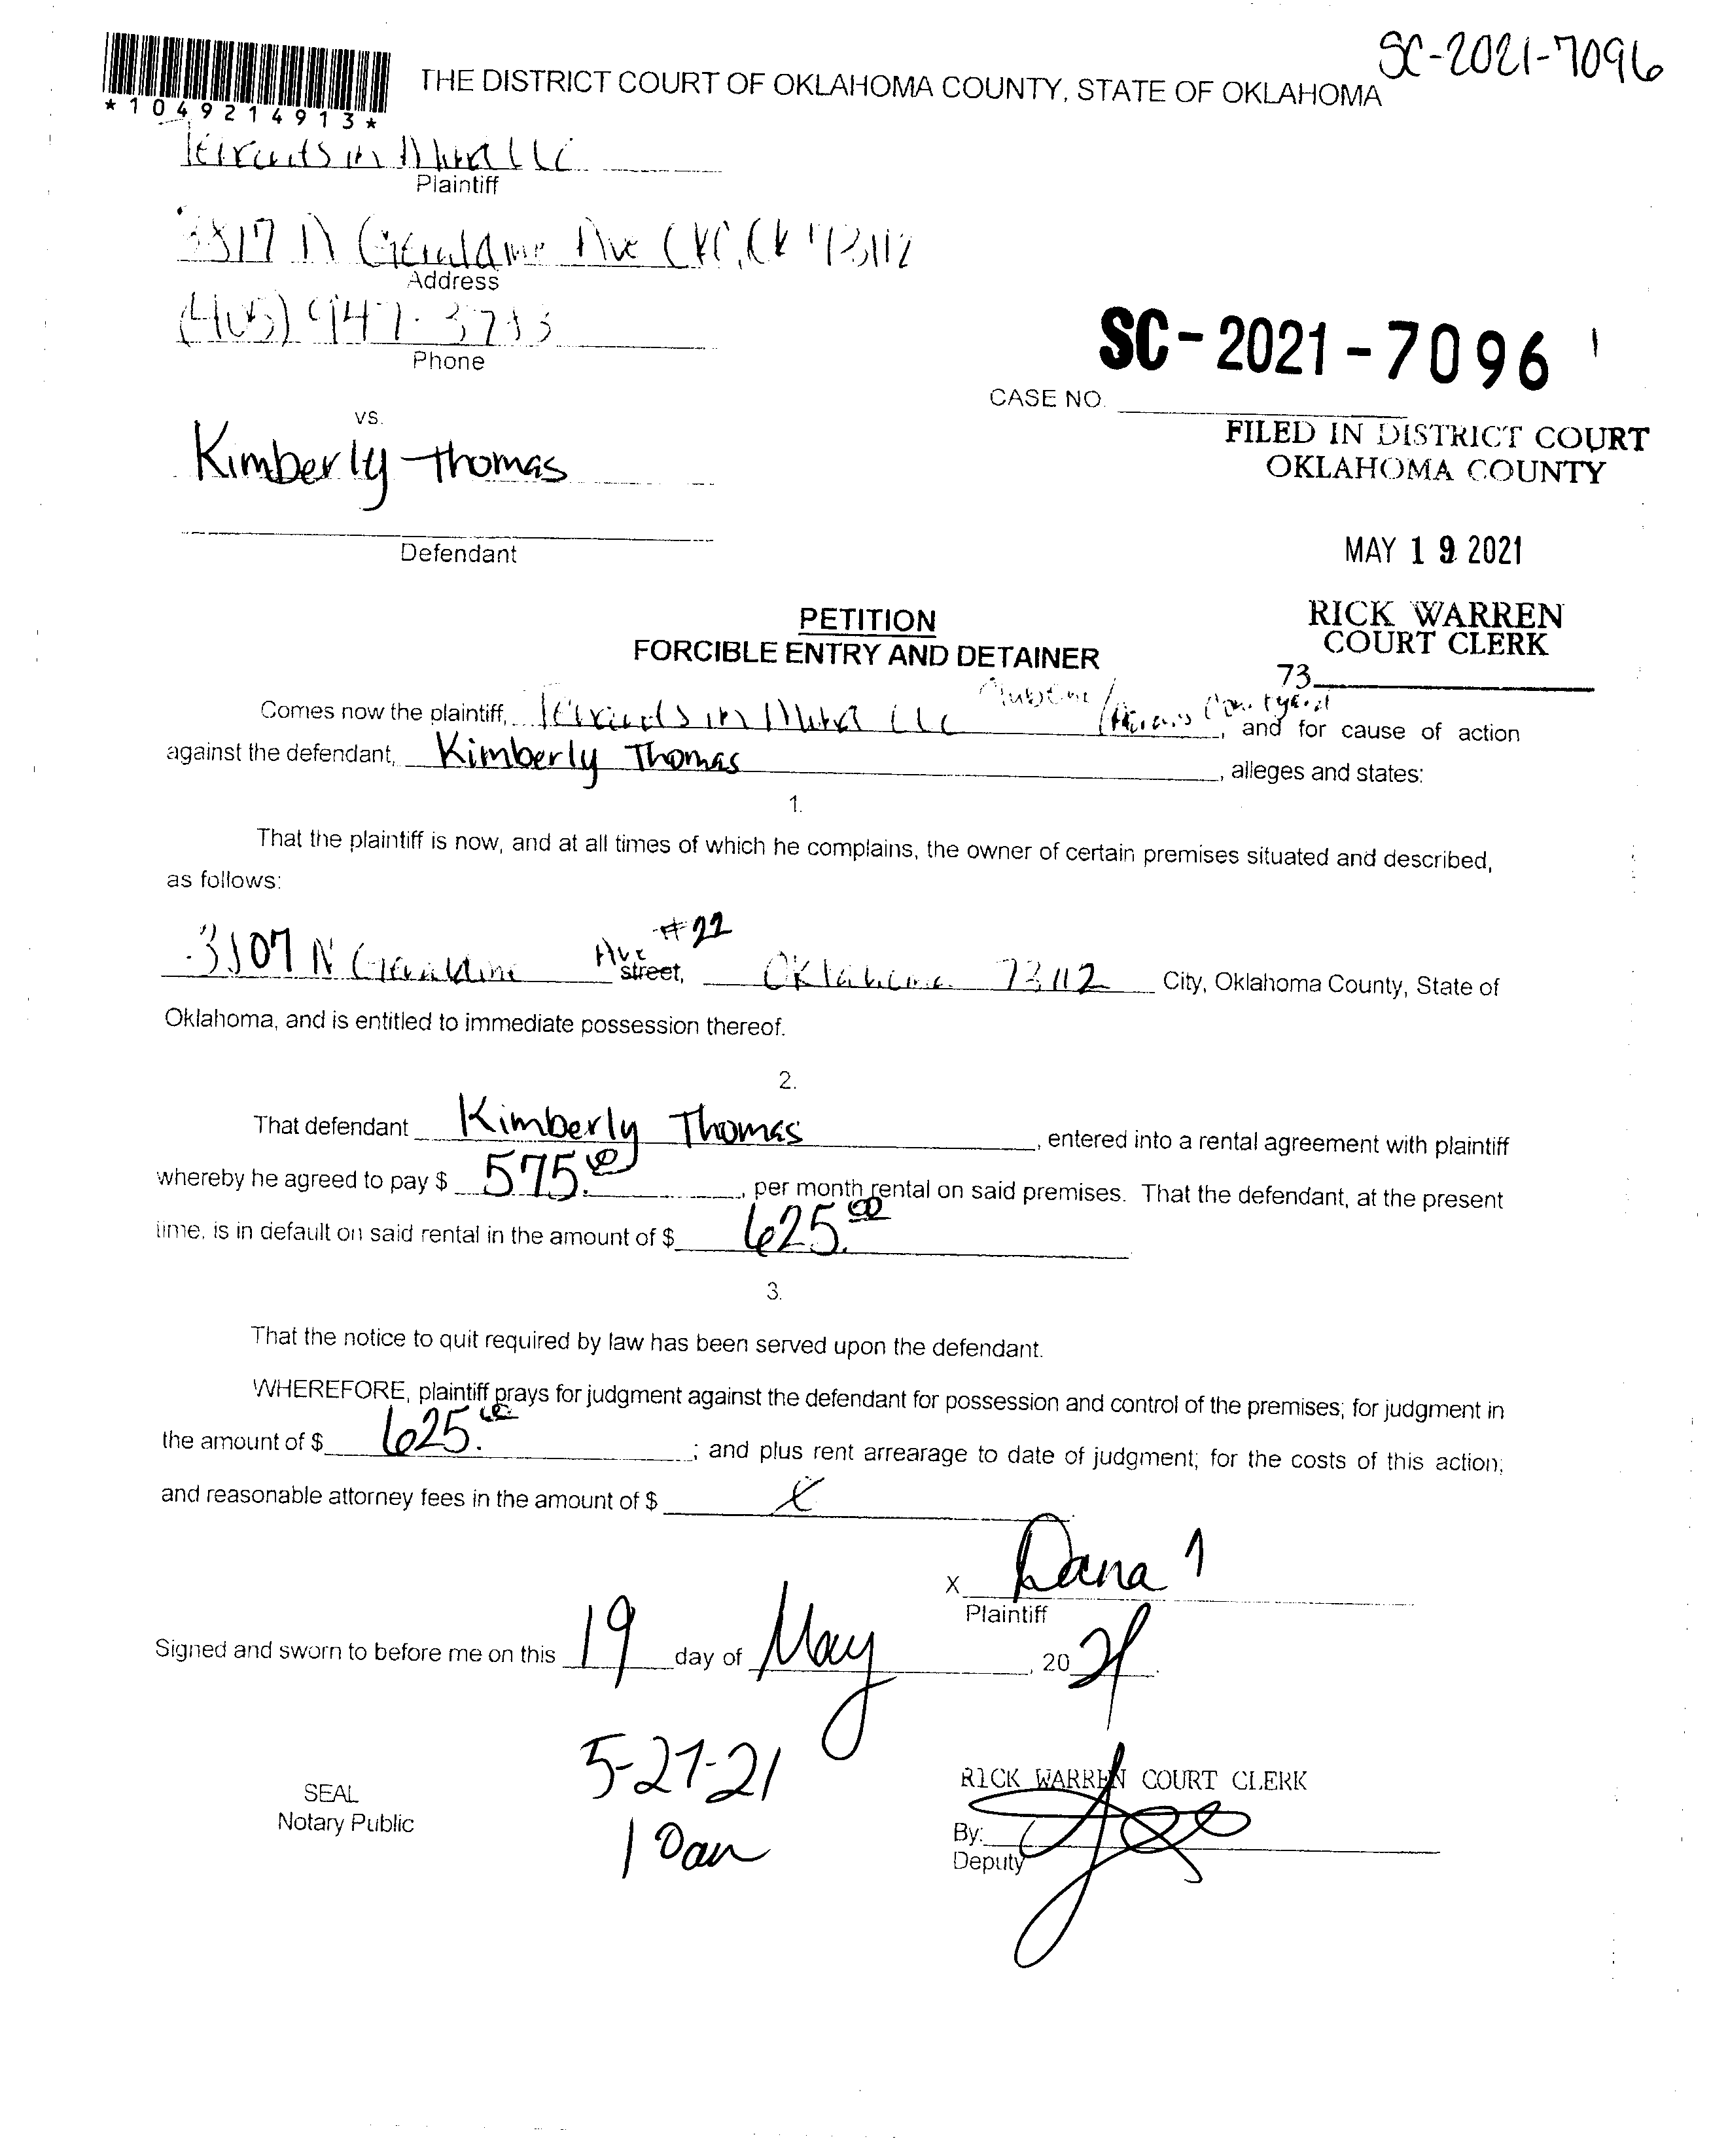 SC-2021-7096
THE DISTRICT COURT OF OKLAHOMA COUNTY, STATE OF OKLAHOMA
*1049214913*
in LLC
Plaintiff
N Geraldine Ave OKC, OK 73112
Address
(405) 947-3733
Phone
SC-2021-7096
CASE NO.
vs.
FILED IN DISTRICT COURT
OKLAHOMA COUNTY
Kimberly Thomas
Defendant
MAY 19 2021
RICK WARREN
COURT CLERK
73
PETITION
FORCIBLE ENTRY AND DETAINER
Comes now the plaintiff, in LLC / Courtyard, and for cause of action
against the defendant, Kimberly Thomas, alleges and states:
1.
That the plaintiff is now, and at all times of which he complains, the owner of certain premises situated and described,
as follows:
N Geraldine Ave street, #22 Oklahoma 73112 City, Oklahoma County, State of
Oklahoma, and is entitled to immediate possession thereof.
2.
That defendant Kimberly Thomas, entered into a rental agreement with plaintiff
whereby he agreed to pay $ 575.00, per month rental on said premises. That the defendant, at the present
time, is in default on said rental in the amount of $ 625.00
3.
That the notice to quit required by law has been served upon the defendant.
WHEREFORE, plaintiff prays for judgment against the defendant for possession and control of the premises; for judgment in
the amount of $ 625.00; and plus rent arrearage to date of judgment; for the costs of this action;
and reasonable attorney fees in the amount of $
X Dana
Plaintiff
Signed and sworn to before me on this 19 day of May, 2021.
5-27-21
10am
SEAL
Notary Public
RICK WARREN COURT CLERK
By:
Deputy